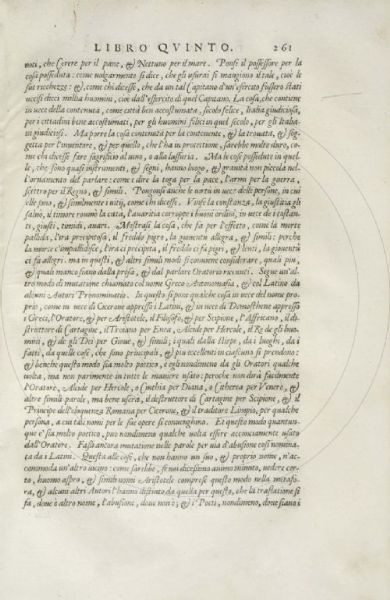 LIBRO QVINTO. 261
noti, che Cerere per il pane, & Nettuno per il mare. Ponsi il possessore per la
cosa posseduta: come volgarmente si dice, che gli usurai si mangiono il tale, cioè le
sue ricchezze: &, come chi dicesse, che da un tal Capitano d'un esercito fussero stati
uccisi dieci milia huomini, cioè dall'essercito di quel Capitano. La cosa, che contiene
in vece della contenuta, come città ben accostumata, secolo felice, Italia giudiciosa,
per i cittadini bene accostumati, per gli huomini felici in quel secolo, per gli Italia-
ni giudiciosi. Ma porre la cosa contenuta per la contenente, & la trovata, & sog-
getta per l'inventore, & per quello, che l'ha in protettione, sarebbe molto duro, co-
me chi dicesse fare sagrificio al uino, o alla lussuria. Ma le cose possedute in quel-
le, che sono quasi instrumenti, & segni, hanno luogo, & gravità non piccola nel-
l'ornamento del parlare: come è dire la toga per la pace, l'arme per la guerra, lo
scettro per il Regno, & simili. Pongonsi anche le virtù in vece delle persone, in cui
elle sono, & similmente i vitij, come chi dicesse. Vinse la constanza, la giustitia gli
salvò, il timore rouinò la città, l'avaritia corroppe i buoni ordini, in vece de i costan-
ti, giusti, timidi, avari. Mostrasi la cosa, che fa per l'effetto, come la morte
pallida, l'ira precipitosa, il freddo pigro, la gioventù allegra, & simili; perche
la morte c'impallidisce, l'ira ci precipita, il freddo ci fa pigri, & lenti, la gioventù
ci fa allegri. ma in questi, & altri simili modi si conviene considerare, quali più,
& quali manco siano dalla prosa, & dal parlare Oratorio ricevuti. Segue un'al-
tro modo di mutatione chiamato col nome Greco Autonomasia, & col Latino da
alcuni Autori Pronominatio. In questo si pone qualche cosa in vece del nome pro-
prio, come in vece di Cicerone appresso i Latini, & in vece di Demosthene appresso
i Greci, l'Oratore, & per Aristotele, il Filosofo, & per Scipione, l'Affricano, il di-
struttore di Cartagine, il Troiano per Enea, Alcide per Hercole, il Re de gli huo-
mini, & de gli Dei per Giove, & simili; i quali dalla stirpe, da i luoghi, da i
fatti, da quelle cose, che sono principali, & più eccellenti in ciascuno si prendono:
& benche questo modo sia molto poetico, è egli nondimeno da gli Oratori qualche
volta, ma non parimente in tutte le maniere usato: perche non dirà facilmente
l'Oratore, Alcide per Hercole, o Cinthia per Diana, o Citherea per Venere, &
altre simili parole, ma bene userà, il distruttore di Cartagine per Scipione, & il
Principe dell'eloquenza Romana per Cicerone, & il traditore l'impio, per qualche
persona, a cui tali nomi per le sue opere si convenghino. Et questo modo quantun-
que e' sia molto poetico, può nondimeno qualche volta essere acconciamente usato
dall'Oratore. Fassi ancora mutatione nelle parole per via d'abusione così nomina-
ta da i Latini. Questa alle cose, che non hanno un suo, & proprio nome, n'ac-
commoda un'altro vicino: come sarebbe, se noi dicessimo animo minuto, vedere cer-
to, huomo aspro, & simili modi Aristotele comprese questo modo nella metafo-
ra, & alcuni altri Autori l'hanno distinto da quella per questo, che la traslatione si
fa, dove è altro nome, l'abusione, dove non è; & i Poeti, nondimeno, dove siano i